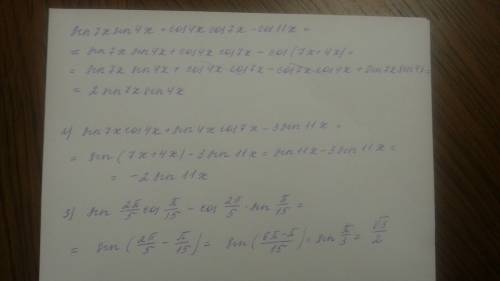 sin7x sin4x + cos4x cos7x - cos11x =
= sin7x sin4x + cos4x cos7x - cos(7x+4x) =
= sin7x sin4x + cos4x cos7x - cos7x cos4x + sin7x sin4x
= 2 sin7x sin4x
2) sin7x cos4x + sin4x cos7x - 3 sin11x =
= sin(7x+4x) - 3 sin11x = sin11x - 3 sin11x =
= -2 sin11x
3) sin 2π/5 cos π/15 - cos 2π/5 · sin π/15 =
= sin(2π/5 - π/15) = sin(6π-π/15) = sin π/3 = √3/2